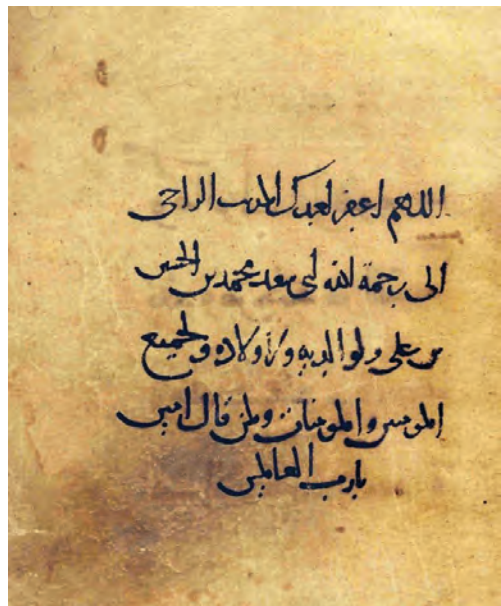 اللهم اغفر لعبدك المذنب الراجى
الى رحمة الله ابى سعد محمد بن الحسن
بن على ولوالديه ولاولاده ولجميع
المومنين والمومنات ولمن قال امين
يارب العالمين